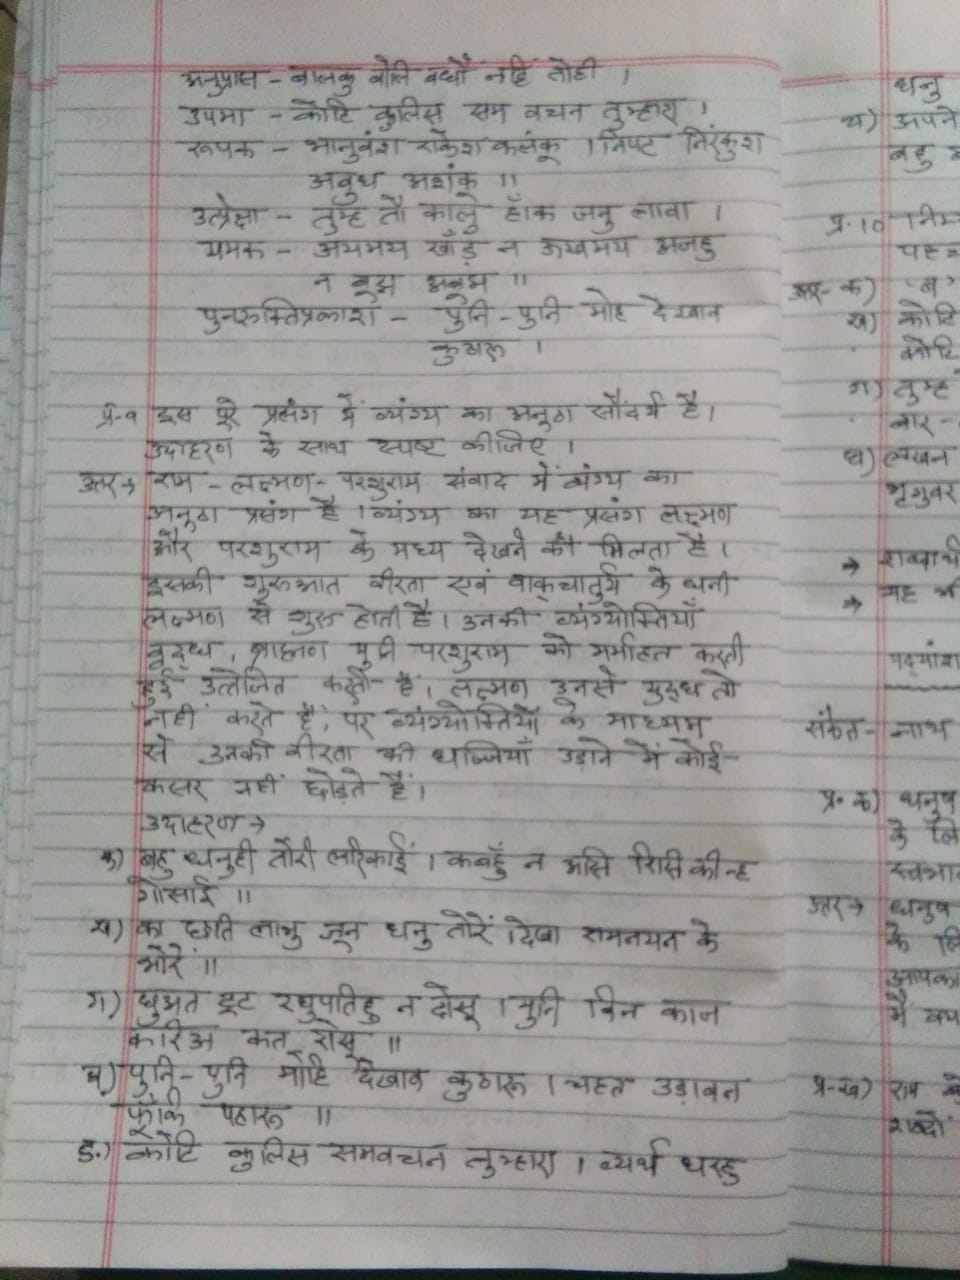 अनुप्रास - बालकु बोलि बधौं नहि तोही ।
उपमा - कोटि कुलिस सम वचन तुम्हारा ।
रूपक - भानुवंश राकेश कलंकू । निपट निरंकुश
अबुध अशंकू ॥
उत्प्रेक्षा - तुम्ह तौ कालु हाँक जनु लावा ।
यमक - अयमय खाँड़ न ऊखमय अजहु
न बूझ अबूझ ॥
पुनरुक्तिप्रकाश - पुनि-पुनि मोह देखाव
कुठारू ।
प्र-9 इस पूरे प्रसंग में व्यंग्य का अनूठा सौंदर्य है।
उदाहरण के साथ स्पष्ट कीजिए ।
उत्तर→ राम - लक्ष्मण - परशुराम संवाद में व्यंग्य का
अनूठा प्रसंग है । व्यंग्य का यह प्रसंग लक्ष्मण
और परशुराम के मध्य देखने को मिलता है।
इसकी शुरुआत वीरता एवं वाक्चातुर्य के धनी
लक्ष्मण से शुरू होती है। उनकी व्यंग्योक्तियाँ
वृद्ध, ब्राह्मण मुनि परशुराम को मर्माहत करती
हुई उत्तेजित करती हैं, लक्ष्मण उनसे युद्ध तो
नहीं करते हैं, पर व्यंग्योक्तियों के माध्यम
से उनकी वीरता की धज्जियाँ उड़ाने में कोई-
कसर नहीं छोड़ते हैं।
उदाहरण→
क) बहु धनुही तोरी लरिकाईं । कबहुँ न असि रिसि कीन्ह
गोसाईं ॥
ख) का छति लाभु जून धनु तोरें । देखा रामनयन के
भोरें ॥
ग) छुअत टूट रघुपतिहु न दोसू । मुनि बिन काज
करिअ कत रोसू ॥
घ) पुनि-पुनि मोहि देखाव कुठारू । चहत उड़ावन
फूँकि पहारू ॥
ङ.) कोटि कुलिस समवचन तुम्हारा । व्यर्थ धरहु
धनु
घ) अपने
बहु
प्र.10
उत्तर- क)
ख) कोटि
कोटि
ग) तुम्ह
बार-
घ) लखन
भृगुवर
→
→ यह
संकेत- नाथ
प्र. क) धनुष
के
उत्तर→ धनुष
के
में
प्र-ख) राम